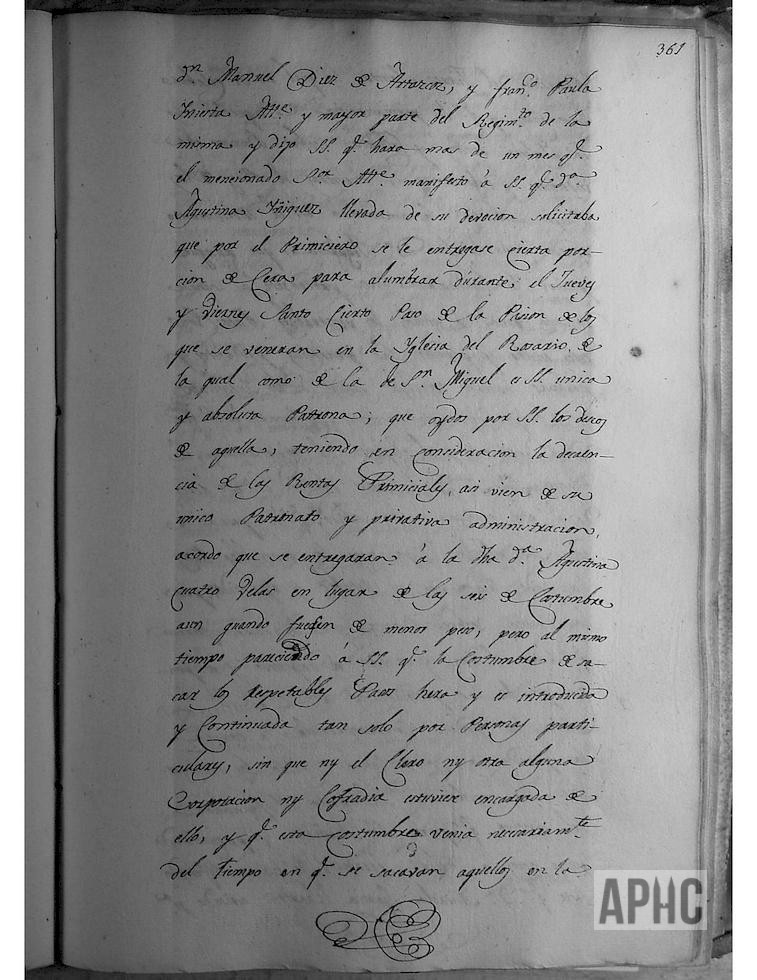 361
dn. Manuel Diez de Artazcoz, y fran.co Paula
Yniesta Att.e y mayor parte del Regim.to de la
misma y dijo SS. q.e hara mas de un mes q.e
el mencionado S.or Att.e manifesto â SS. q.e d.a
Agustina Yñiguez llevada de su devocion solicitaba
que por el Primiciero se le entregase cierta por-
cion de Cera para alumbrar durante el Jueves
y Viernes Santo Cierto Paso de la Pasion de los
que se veneran en la Yglesia del Rosario, de
la qual como de la de S.n Miguel es SS. unica
y absoluta Patrona; que oydos por SS. los deseos
de aquella, teniendo en consideracion la decen-
cia de las Rentas Primiciales, asi vien de su
unico Patronato y privativa administracion,
acordo que se entregaran â la dha d.a Agustina
cuatro velas en lugar de las seis de Costumbre
aun quando fuesen de menos peso, pero al mismo
tiempo pareciendo â SS. q.e la Costumbre de sa-
car los respetables Pasos hera y es introducida
y Continuada tan solo por Personas parti-
culares, sin que ny el Clero ny otra alguna
Corporacion ny Cofradia estuviese encargada de
ello, y q.e esta costumbre venia necesariam.te
del tiempo en q.e se sacavan aquellos en la
APHC